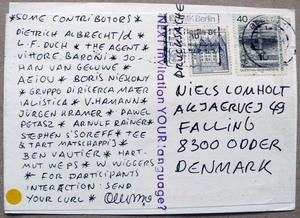 *SOME CONTRIBUTORS*
DIETRICH ALBRECHT/d
L.F. DUCH * THE AGENT *
VITTORE BARONI * JO-
HAN VAN GELUWE *
AEIOU * BORIS NIESLONY
* GRUPPO DI RICERCA MATER
IALISTICA * V. HAMANN *
JÜRGEN KRAMER * PAWEL
PETASZ * ARNULF RAINER *
STEPHEN S'SOREFF * TEE
& TART MATSCHAPPIJ *
BEN VAUTIER * HART-
MUT WEPS * W. WIGGERS
* FOR PARTICIPANTS
INTERACTION: SEND
YOUR CURL *
YOUR language?
DRUCKSACHE
Berlin
40
NIELS LOMHOLT
AKJÆRVEJ 49
FALLING
8300 ODDER
DENMARK